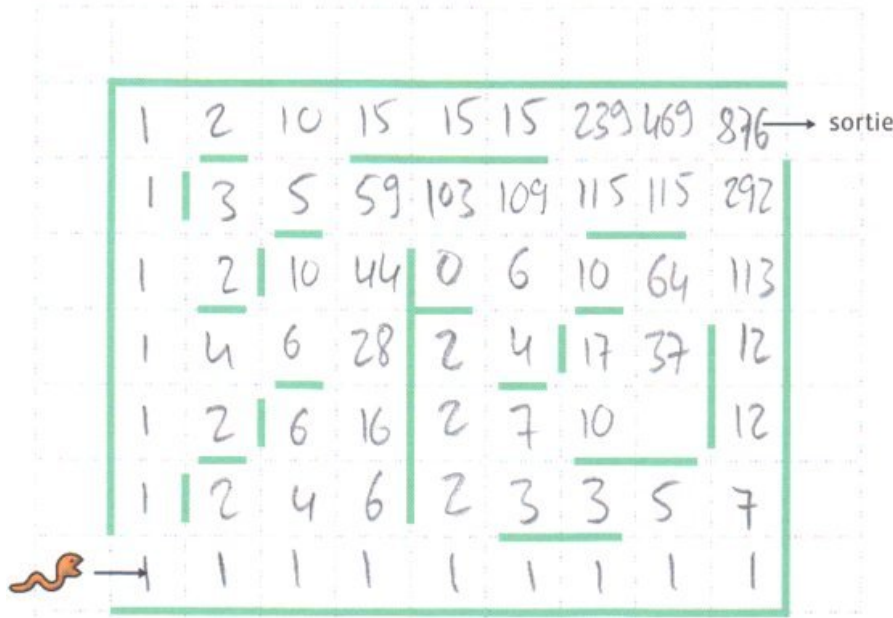 1 2 10 15 15 15 239 469 876 sortie
1 3 5 59 103 109 115 115 292
1 2 10 44 0 6 10 64 113
1 4 6 28 2 4 17 37 12
1 2 6 16 2 7 10 12
1 2 4 6 2 3 3 5 7
1 1 1 1 1 1 1 1 1